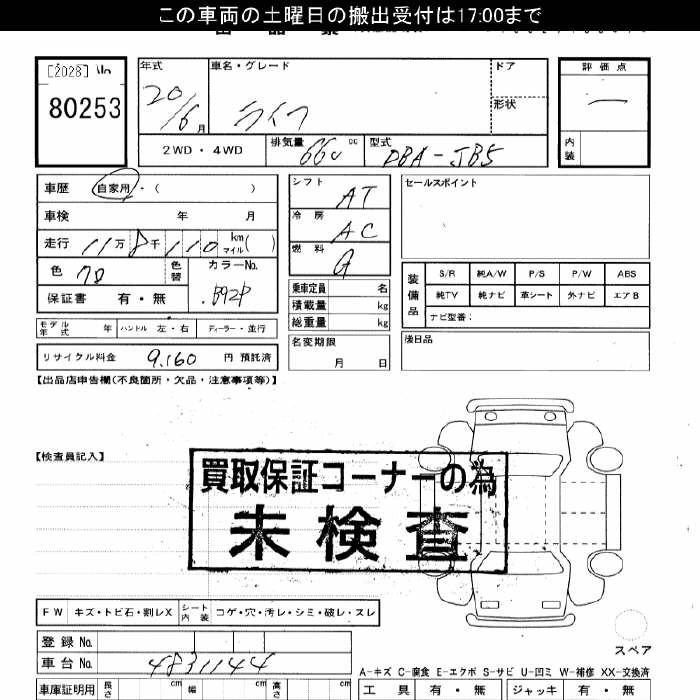 この車両の土曜日の搬出受付は17:00まで
[2028] No
80253
年式 車名・グレード ドア 評価点
20/6月 ライフ 形状 一
2WD・4WD 排気量 660 cc 型式 DBA-JB5 内装
車歴 自家用・( )
車検 年 月
走行 11万8千110 km マイル( )
色 クロ 色替 カラーNo. B92P
保証書 有・無
モデル年式 年 ハンドル 左・右 ディーラー・並行
リサイクル料金 9,160 円 預託済
シフト AT
冷房 AC
燃料 G
乗車定員 名
積載量 kg
総重量 kg
名変期限 月 日
セールスポイント
装備品 S/R 純A/W P/S P/W ABS
純TV 純ナビ 革シート 外ナビ エアB
ナビ型番:
後日品
【出品店申告欄(不良箇所・欠品・注意事項等)】
【検査員記入】
買取保証コーナーの為
未検査
FW キズ・トビ石・割レX シート内装 コゲ・穴・汚レ・シミ・破レ・スレ
登録No.
車台No. 4831144
スペア
A-キズ C-腐食 E-エクボ S-サビ U-凹ミ W-補修 XX-交換済
車庫証明用 長さ cm 幅 cm 高さ cm 工具 有・無 ジャッキ 有・無